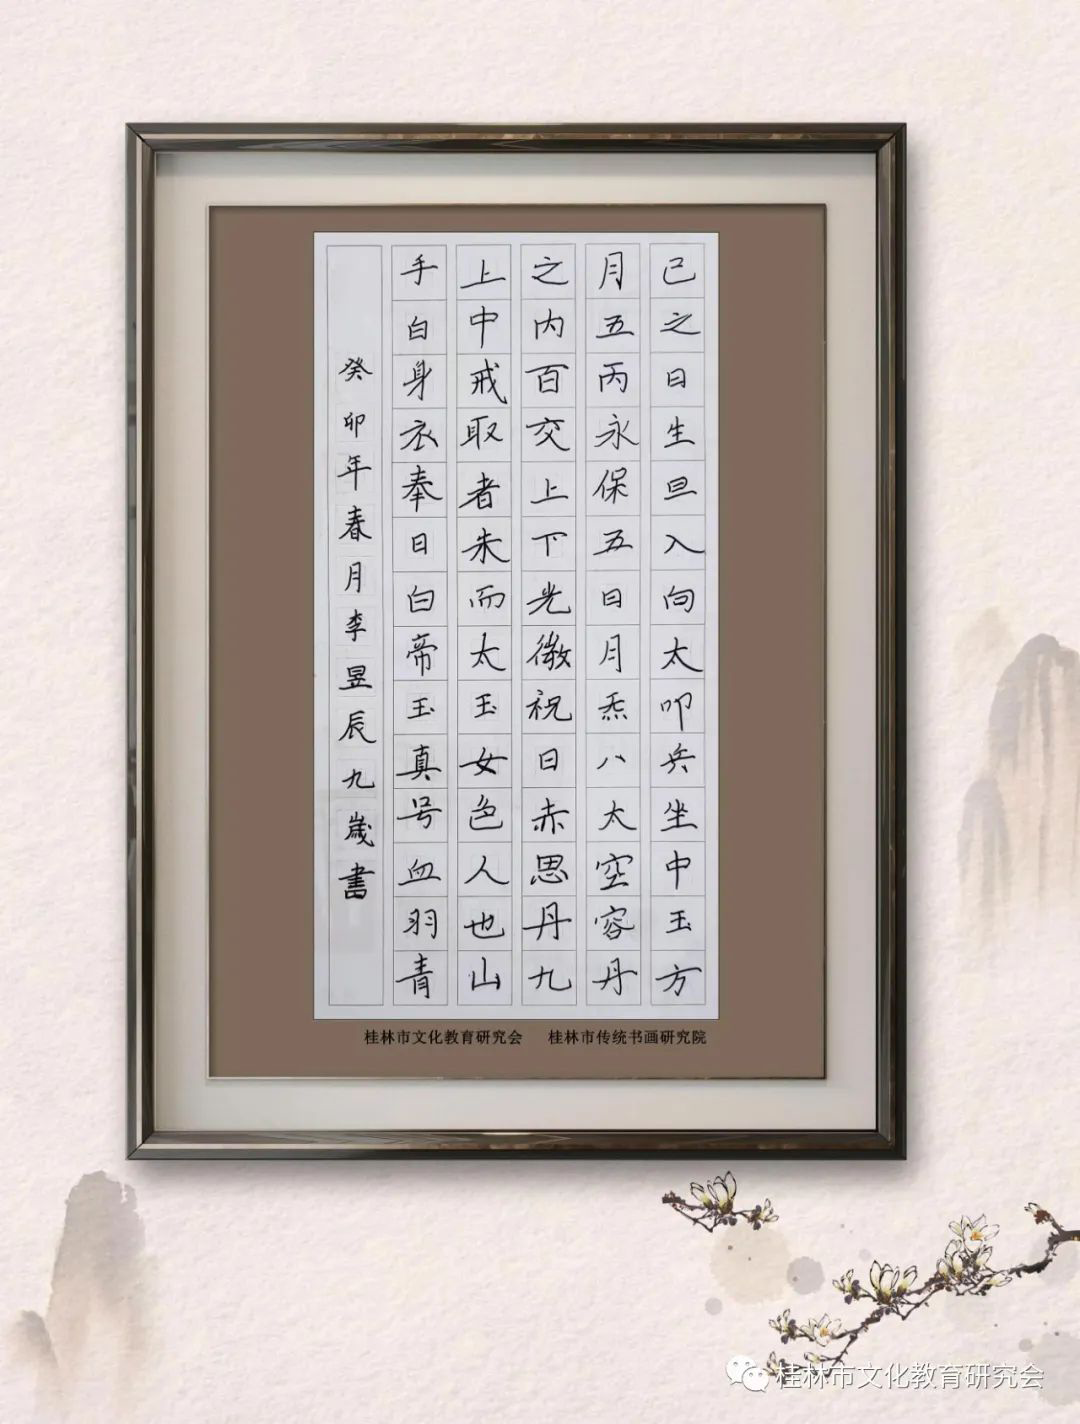 己之日生旦入向太叩兵坐中玉方
月五丙永保五日月炁八太空容丹
之内百交上下光徽祝日赤思丹九
上中戒取者朱而太玉女色人也山
手白身衣奉日白帝玉真号血羽青
癸卯年春月李昱辰九歲書
桂林市文化教育研究会 桂林市传统书画研究院
桂林市文化教育研究会